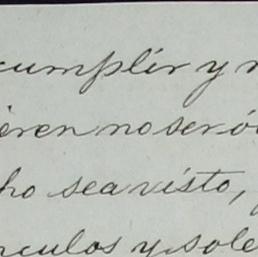 cumplir y
ieren no ser ó
ho sea visto,
rculos y sole